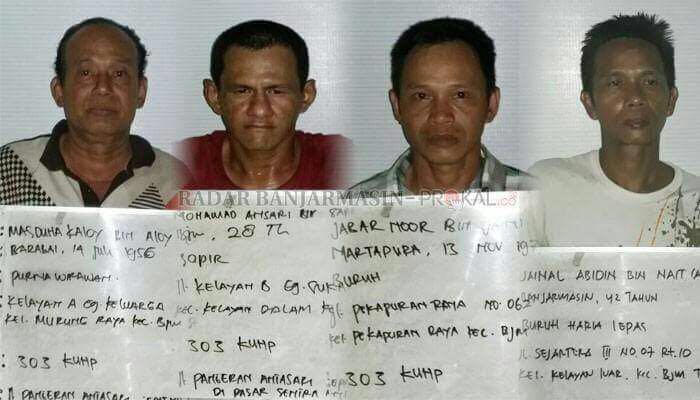 RADAR BANJARMASIN-PROKAL.co
: MASDUHA KALOY BIN ALOY
: BARABAI, 14 JULI 1956
PURNAWIRAWAN.
: KELAYAN A Gg. KELUARGA
KEL. MURUNG RAYA KEC. BJM S
: 303 KUHP
Jl PANGERAN ANTASARI
MOHAMAD ANSARI BIN
BJM, 28 TH
SOPIR
Jl. KELAYAN B Gg.
KEC. KELAYAN DALAM
303 KUHP
Jl PANGERAN ANTASARI
DI PASAR
JABAR NOOR BIN
MARTAPURA, 13 NOV 197
BURUH
PEKAPURAN RAYA NO. 06
KEL PEKAPURAN RAYA KEC. BJM
303 KUHP
JAINAL ABIDIN BIN NAIT (A
BANJARMASIN, 42 TAHUN
BURUH HARIA LEPAS
Jl. SEJAHTERA III NO. 07 Rt. 10
KEL. KELAYAN LUAR, KEC. BJM T
303 KUHP